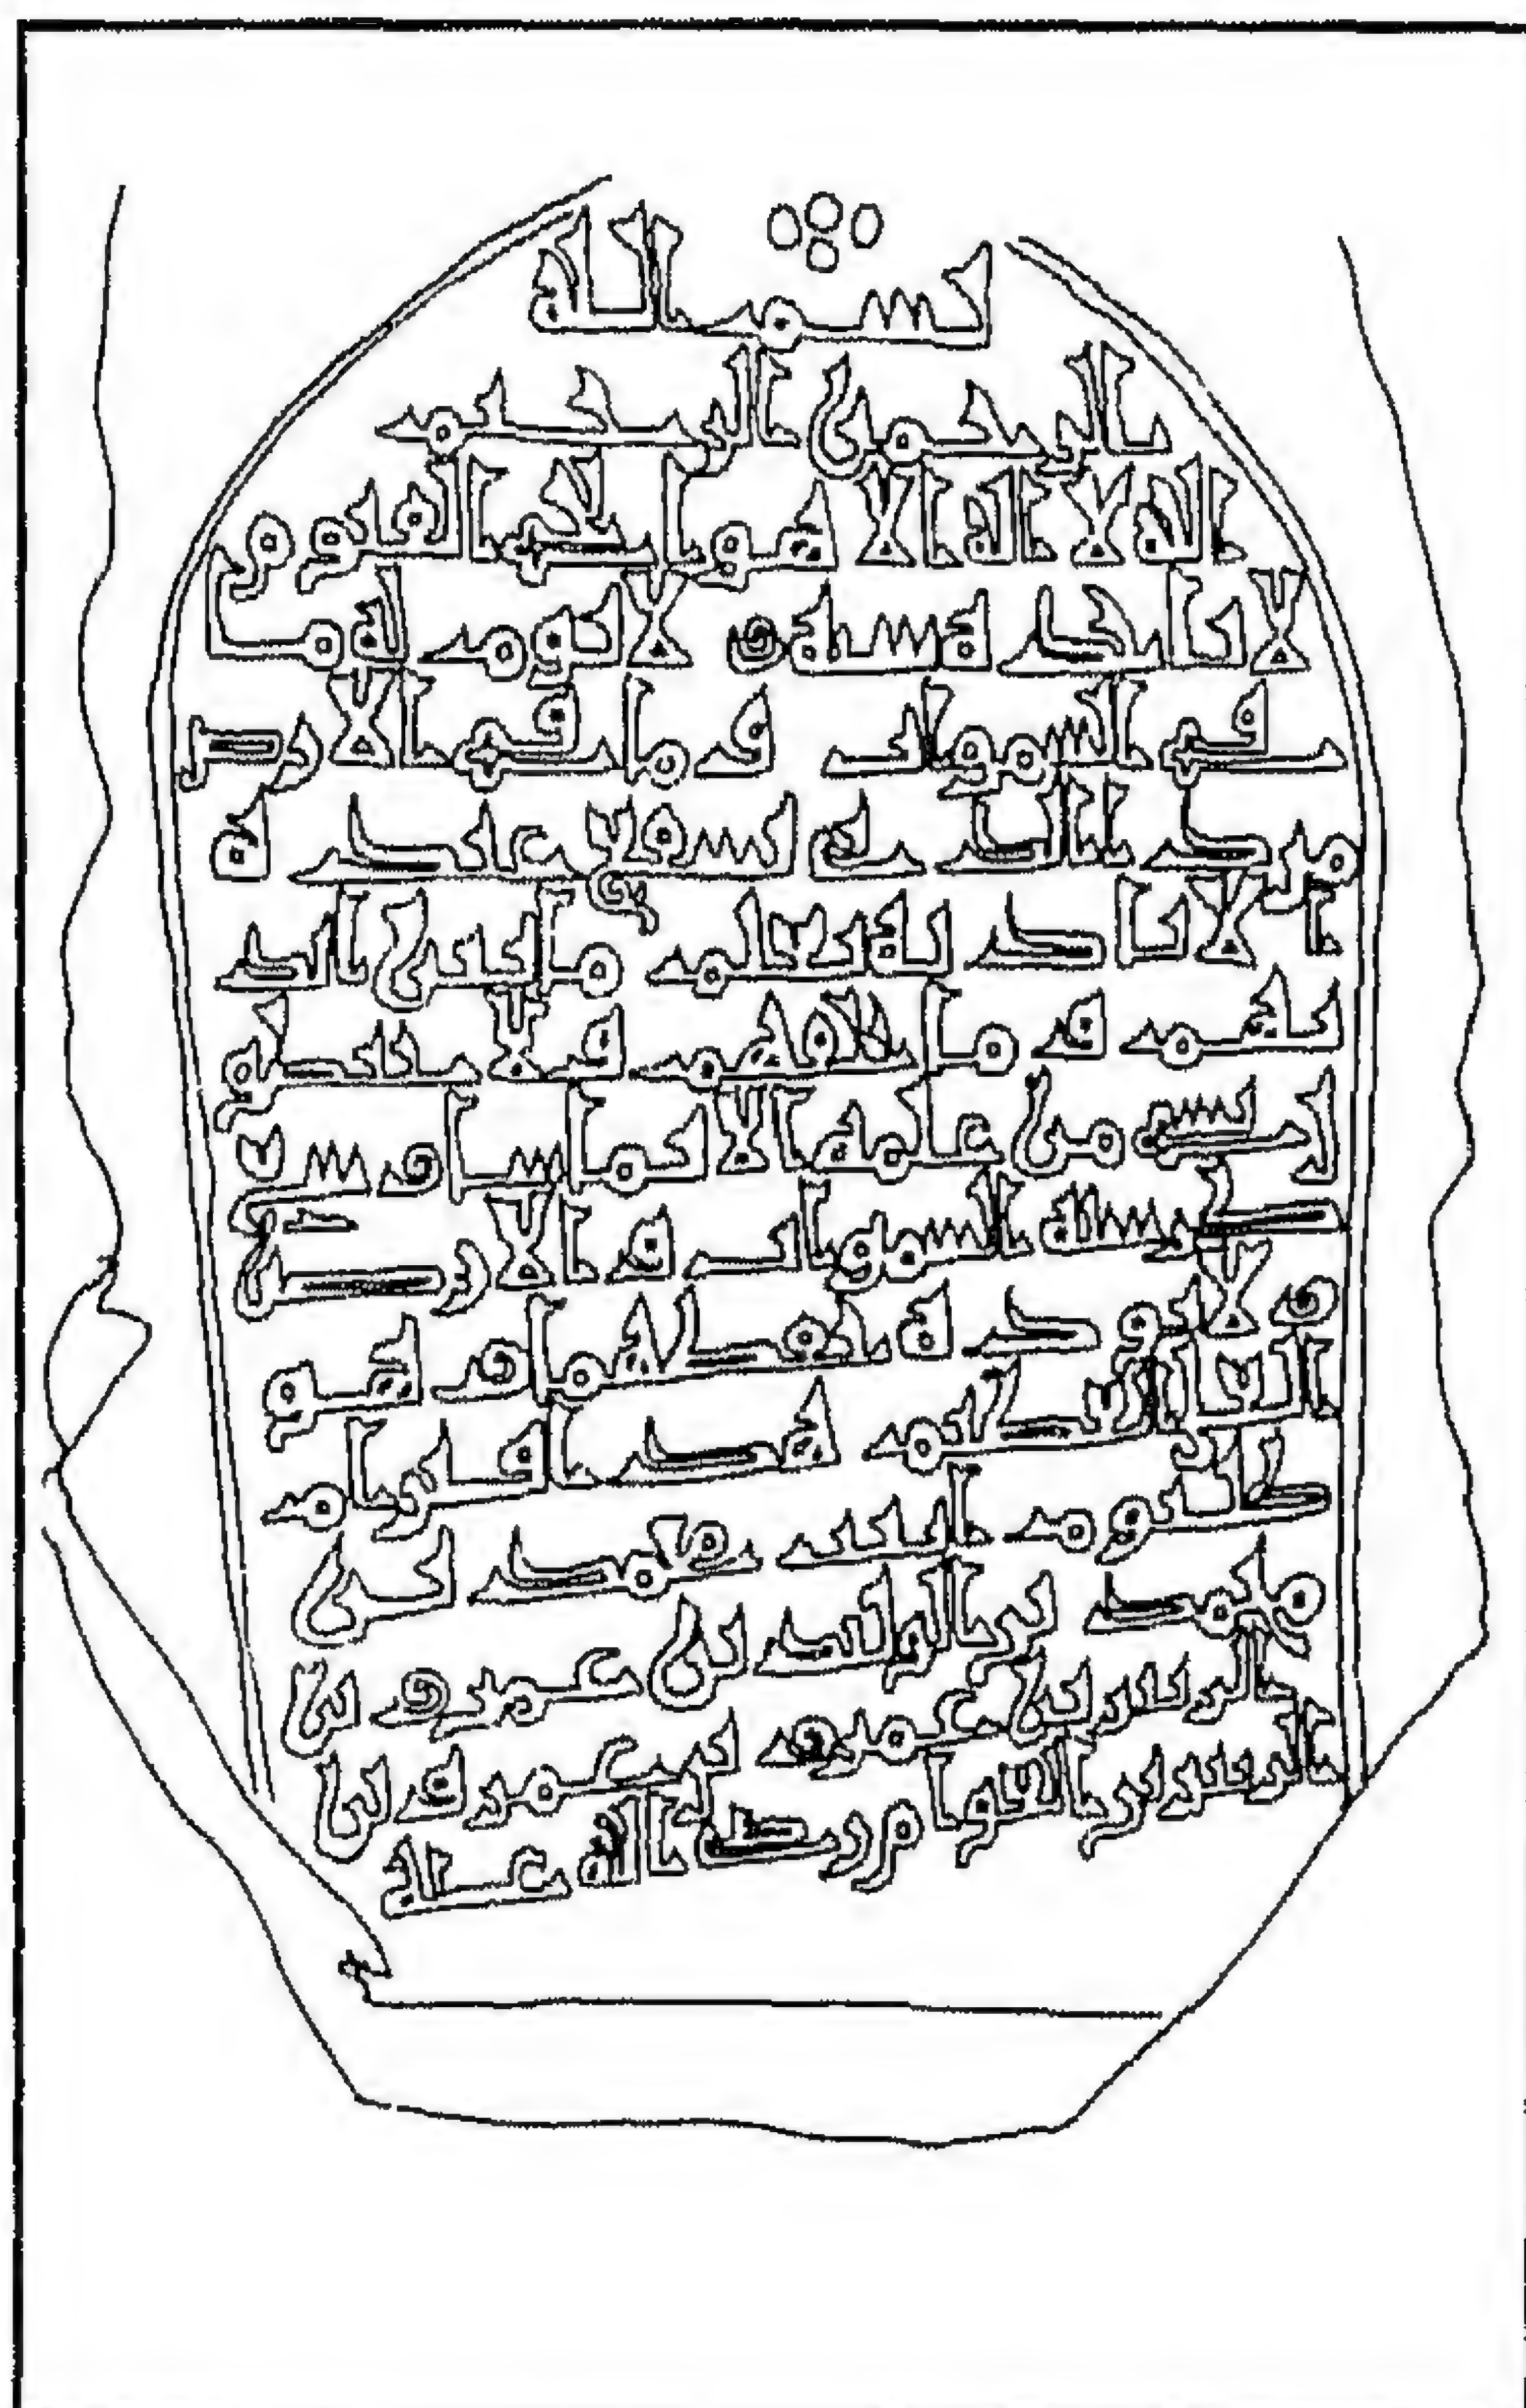 بسم الله
الرحمن الرحيم
الله لا اله الا هو الحي القيوم
لا تاخذه سنة و لا نوم له ما
في السموات و ما في الارض
من ذا الذي يشفع عنده
الا باذنه يعلم ما بين ايد
يهم و ما خلفهم و لا يحيطو
ن بشي من علمه الا بما شا وسع
كرسيه السموات و الارض
و لا يوده حفظهما و هو
العلي العظيم هذا قبر ام
كلثوم ابنت محمد بن
محمد بن بن عمرو بن
الزبير بن عمرو بن عمرو بن
الزبير بن العوام الله عليه